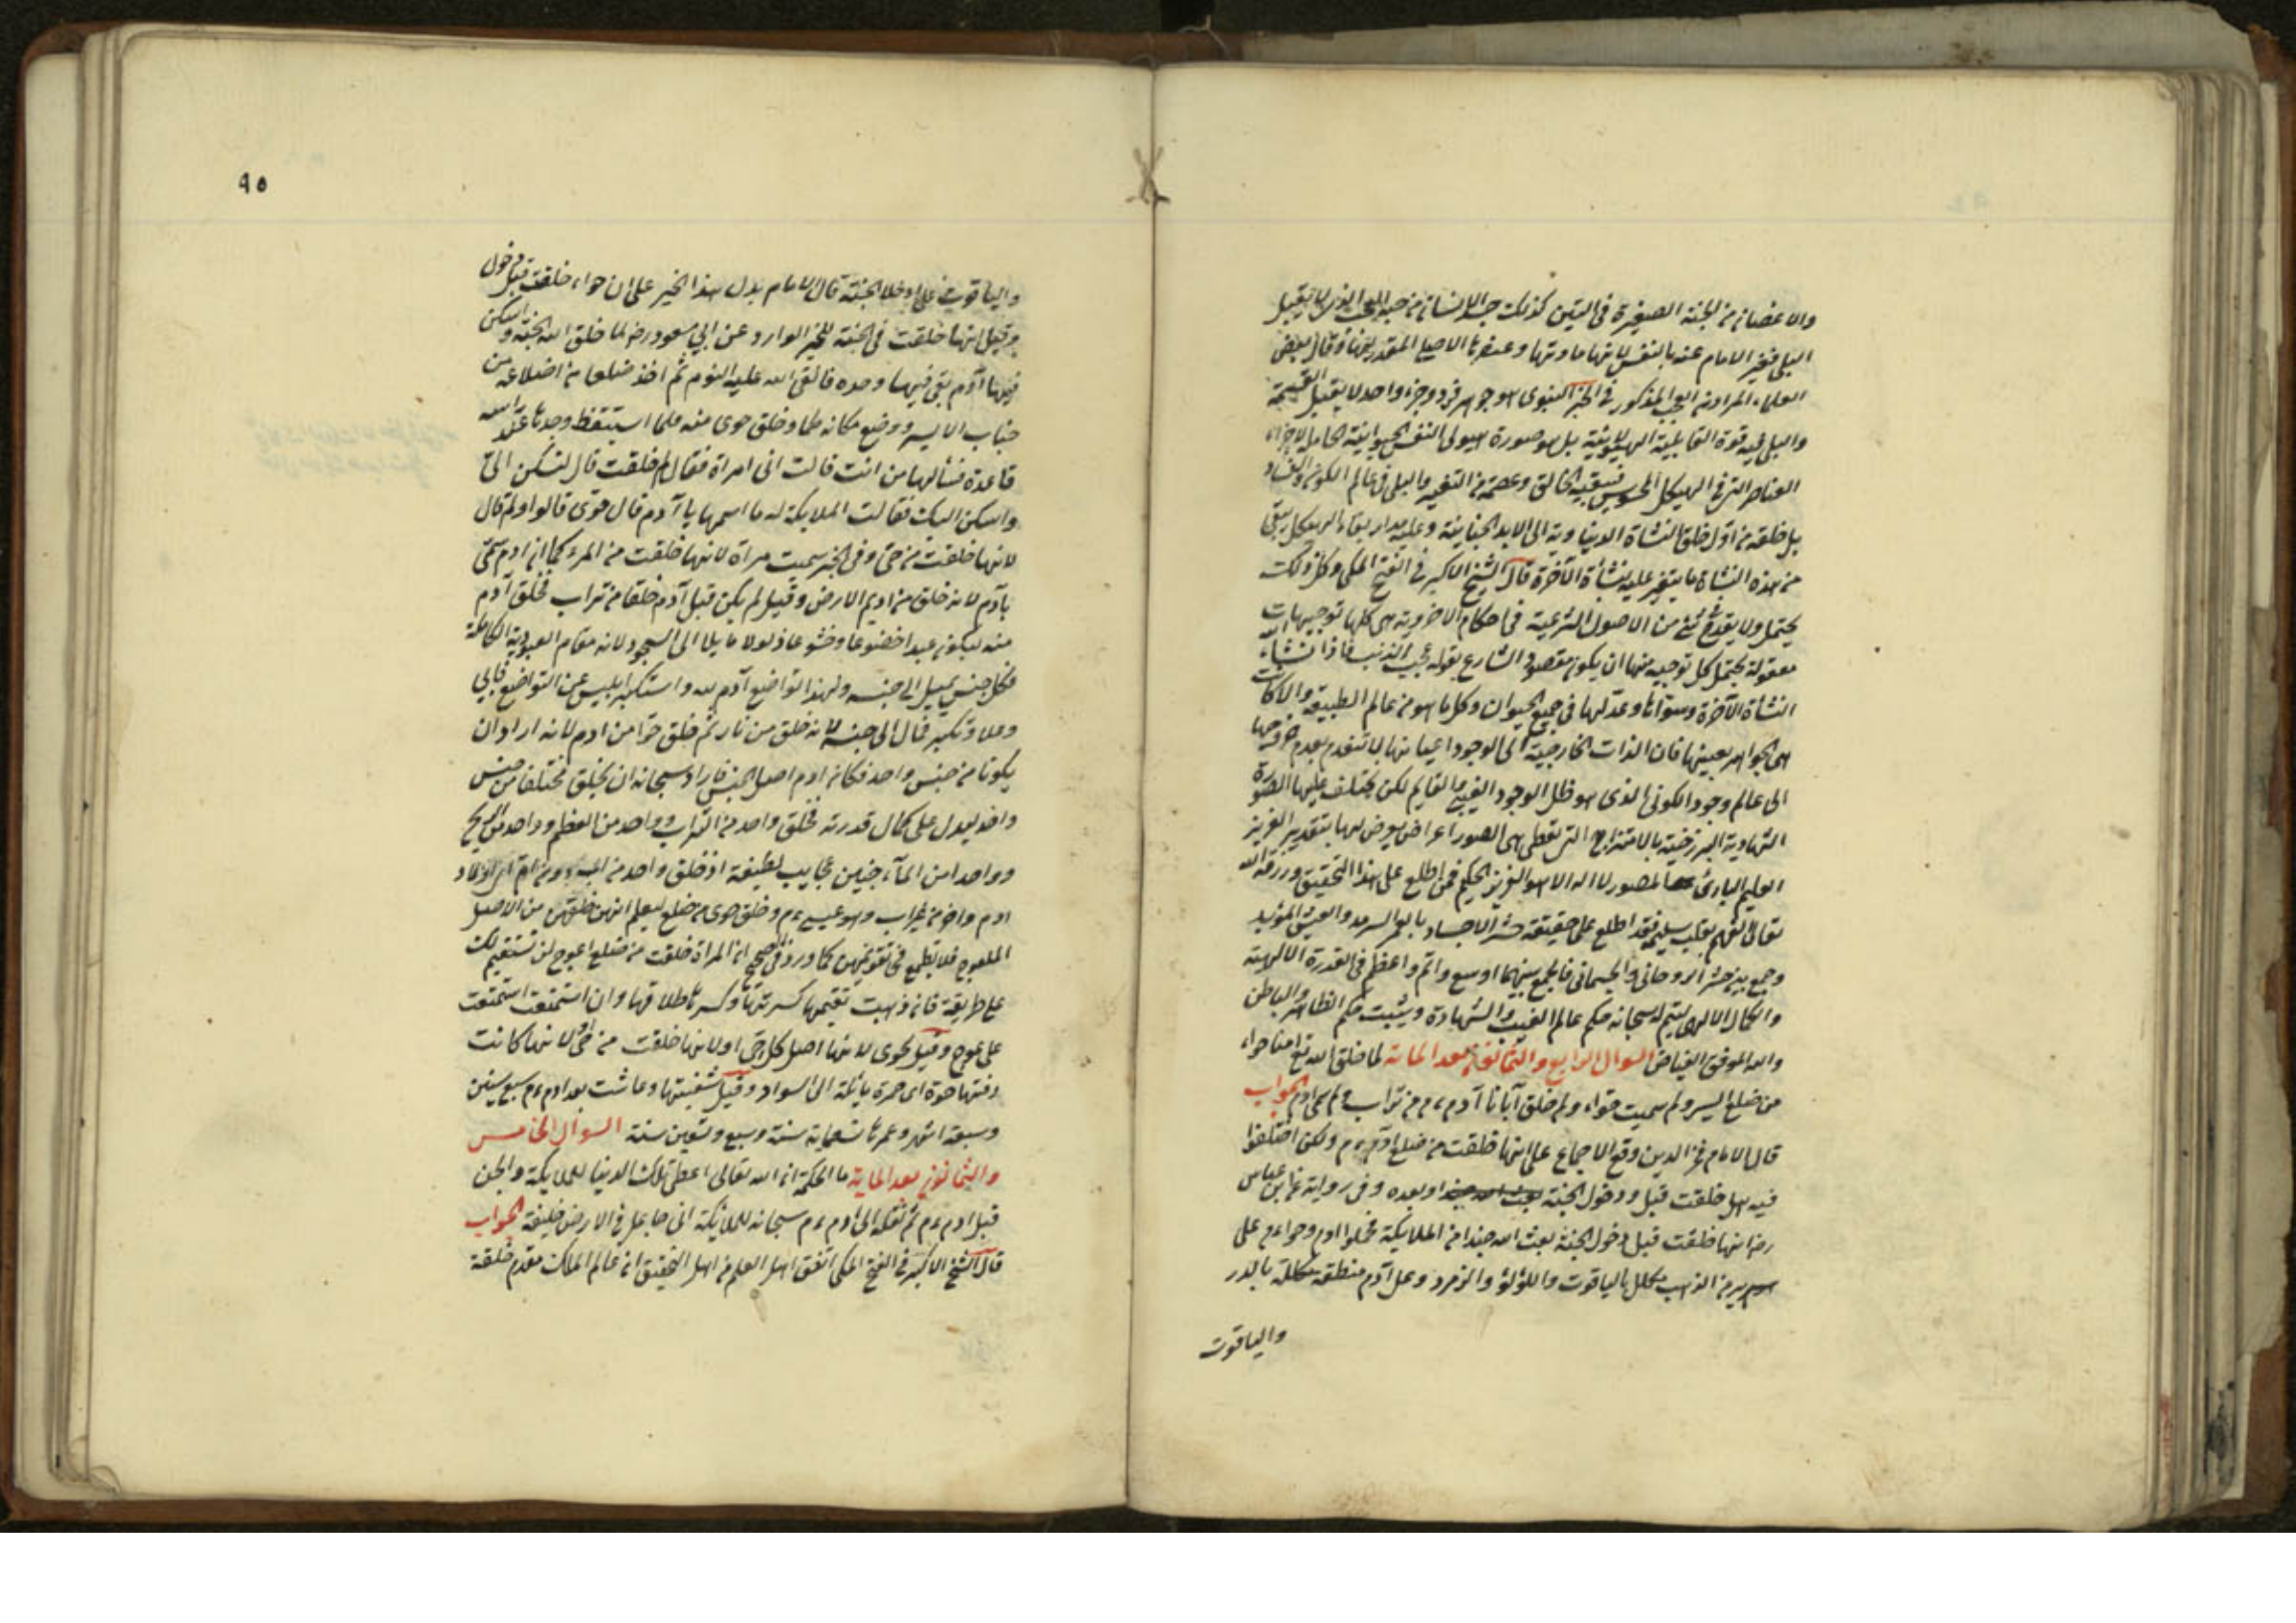 والاغصان من الحبة الصغيرة في التين كذلك جسد الانسان من حبة العجب الذي لا يقبل
البلى فعبر الامام عنه بالنفس لانها مادتها وعنصرها الاصلي المقدر منها وقال بعض
العلماء المراد من العجب المذكور في الخبر النبوي هو جوهر فرد وجزء واحد لا يقبل القسمة
والبلى فيه قوة القابلية الهيولانية بل هو صورة هيولى النفس الحيوانية الحامل لاجزاء
العناصر التي في الهيكل المحسوس فيبقيه الخالق وعصمه من التغيير والبلى في عالم الكون والفساد
بل خلقه من اول خلق النشاة الدنياوية الى الابد وعليه مدار بقاء الهيكل يبقى
من هذه النشاة ما يتغير عليه نشأة الآخرة قال الشيخ الاكبر في الفتح المكي وكل ذلك
يحتمل ولا يقدح في شئ من الاصول الشرعية في احكام الاخروية هي كلها توجيهات
معقولة يحتمل كل توجيه منها ان يكون مقصود الشارع بقوله عجب الذنب فاذا انشاء الله
النشاة الآخرة وسواها وعدلها في جميع الحيوان وكل ما هو من عالم الطبيعة والاكات
هي الجواهر بعينها فان الذات الخارجية الى الوجود اعيانها لا تنعدم بعدم خروجها
الى عالم وجود الكوني الذي هو ظل الوجود الغيبي القايم لكن يختلف عليها الصورة
الشهادية البرزخية بالامتزاج التي تعطي هي الصور اعراض يعرض لها بتقدير العزيز
العليم البارئ المصور لا اله الا هو العزيز الحكيم فمن اطلع على هذا التحقيق ورزقه الله
تعالى الفهم بقلب سليم فقد اطلع على حقيقة حشر الاجساد بالعمر السرمد والعيش المؤبد
وجمع بين حشر الروحاني والجسماني فالجمع بينهما اوسع واتم واعظم في القدرة الالهية
والكمال الالهي ليتم له سبحانه حكم عالم الغيب والشهادة ويثبت حكم الظاهر والباطن
والله الموفق الفياض السوال الرابع والثمانون بعد المائة لما خلق الله تع امنا حواء
من ضلع اليسر ولم سميت حواء ولم خلق آبانا آدم ءم من تراب ولم سمى ادم الجواب
قال الامام فخر الدين وقع الاجماع على انها خلقت من ضلع ادم ءم ولكن اختلفوا
فيه هل خلقت قبل ودخول الجنة او بعده وفي رواية عن ابن عباس
رضـ انها خلقت قبل دخول الجنة بعث الله جندا من الملايكة فحملوا ادم وحواءم على
سرير من الذهب مكلل بالياقوت واللؤلؤ والزمرد وعلى آدم منطقة مكللة بالدر
والياقوت
٩٥
والياقوت على ادخلا الجنة قال الامام يدل هذا الخبر على ان حواء خلقت قبل دخول
وقيل انها خلقت في الجنة للخبر الوارد عن ابي مسعود رضـ لما خلق الله الجنة واسكن
فيها آدم بقي فيها وحده فالقى الله عليه النوم ثم اخذ ضلعا من اضلاعه من
جناب الايسر ووضع مكانه طما وخلق حوى منه فلما استيقظ وجدها عند راسه
قاعدة فسألها من انت قالت اني امراة فقال لم خلقت قال لتسكن الي
واسكن اليك فقالت الملايكة له ما اسمها يا آدم قال حوى قالوا ولم قال
لانها خلقت من حي وفي الخبر سميت مراة لانها خلقت من المرء كما ان ادم سمى
بآدم لانه خلق من اديم الارض وقيل لم يكن قبل آدم خلقا من تراب فخلق آدم
منه ليكون عبدا خضوعا وخشوعا ذلولا مايلا الى السجود لانه مقام العبودية الكاملة
فكل جنس يميل الى جنسه ولهذا تواضع آدم لله واستكبر ابليس عن التواضع فابى
وعلا وتكبر فمال الى جنسه لانه خلق من نار ثم خلق حوا من ادم لانه اراد ان
يكونا من جنس واحد فكان ادم اصل الجنس فاراد سبحانه ان يخلق مختلفا من جنس
واحد ليدل على كمال قدرته فخلق واحد من التراب وواحد من العظم وواحد من الريح
وواحدا من الماء جنين عجايب لطيفة اذ خلق واحد من ومن ام الاولاد
ادم واخر من غير اب وهو عيسى ءم وخلق حوى من ضلع ليعلم انهن خلقن من الاصل
المعلوج فلا تطمع في تقويمهن كما ورد في الصحيح ان المراة خلقت من ضلع اعوج لن تستقيم لك
على طريقة فان ذهبت تقيمها كسرتها وكسرها طلاقها وان استمتعت استمتعت
على عوج وقيل حوى لانها اصل كل حي او لانها خلقت من حي لانها كانت
دفتها حوة اى حمرة يائلة الى السواد وقيل شفتيها وعاشت بعد ادم ءم سبع سنين
وسبعة اشهر وعمرها تسعماية سنة وسبع وتسعين سنة السوال الخامس
والثمانون بعد الماية ما الحكمة ان الله تعالى اعطى تلك الدنيا للملايكة والجن
قبل ادم ءم ثم نقله الى ادم ءم سبحانه للملائكة اني جاعل في الارض خليفة الجواب
قال الشيخ الاكبر في الفتح المكي اتفق اهل العلم من اهل التحقيق ان عالم الملك مقدم خلقه